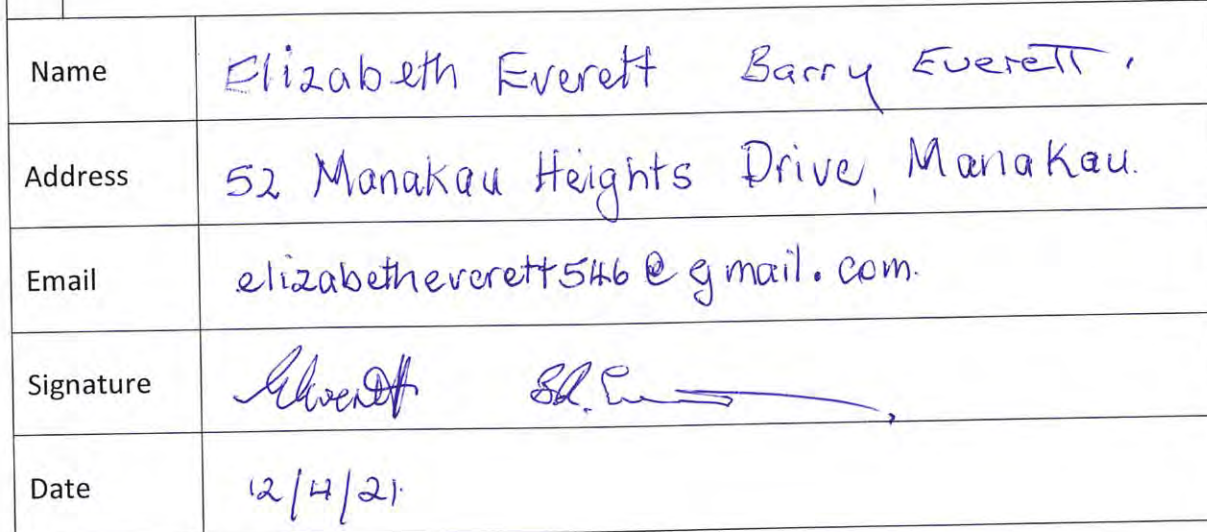 Name Elizabeth Everett Barry Everett.
Address 52 Manakau Heights Drive, Manakau.
Email elizabetheverett546@gmail.com.
Signature
Date 12/4/21.